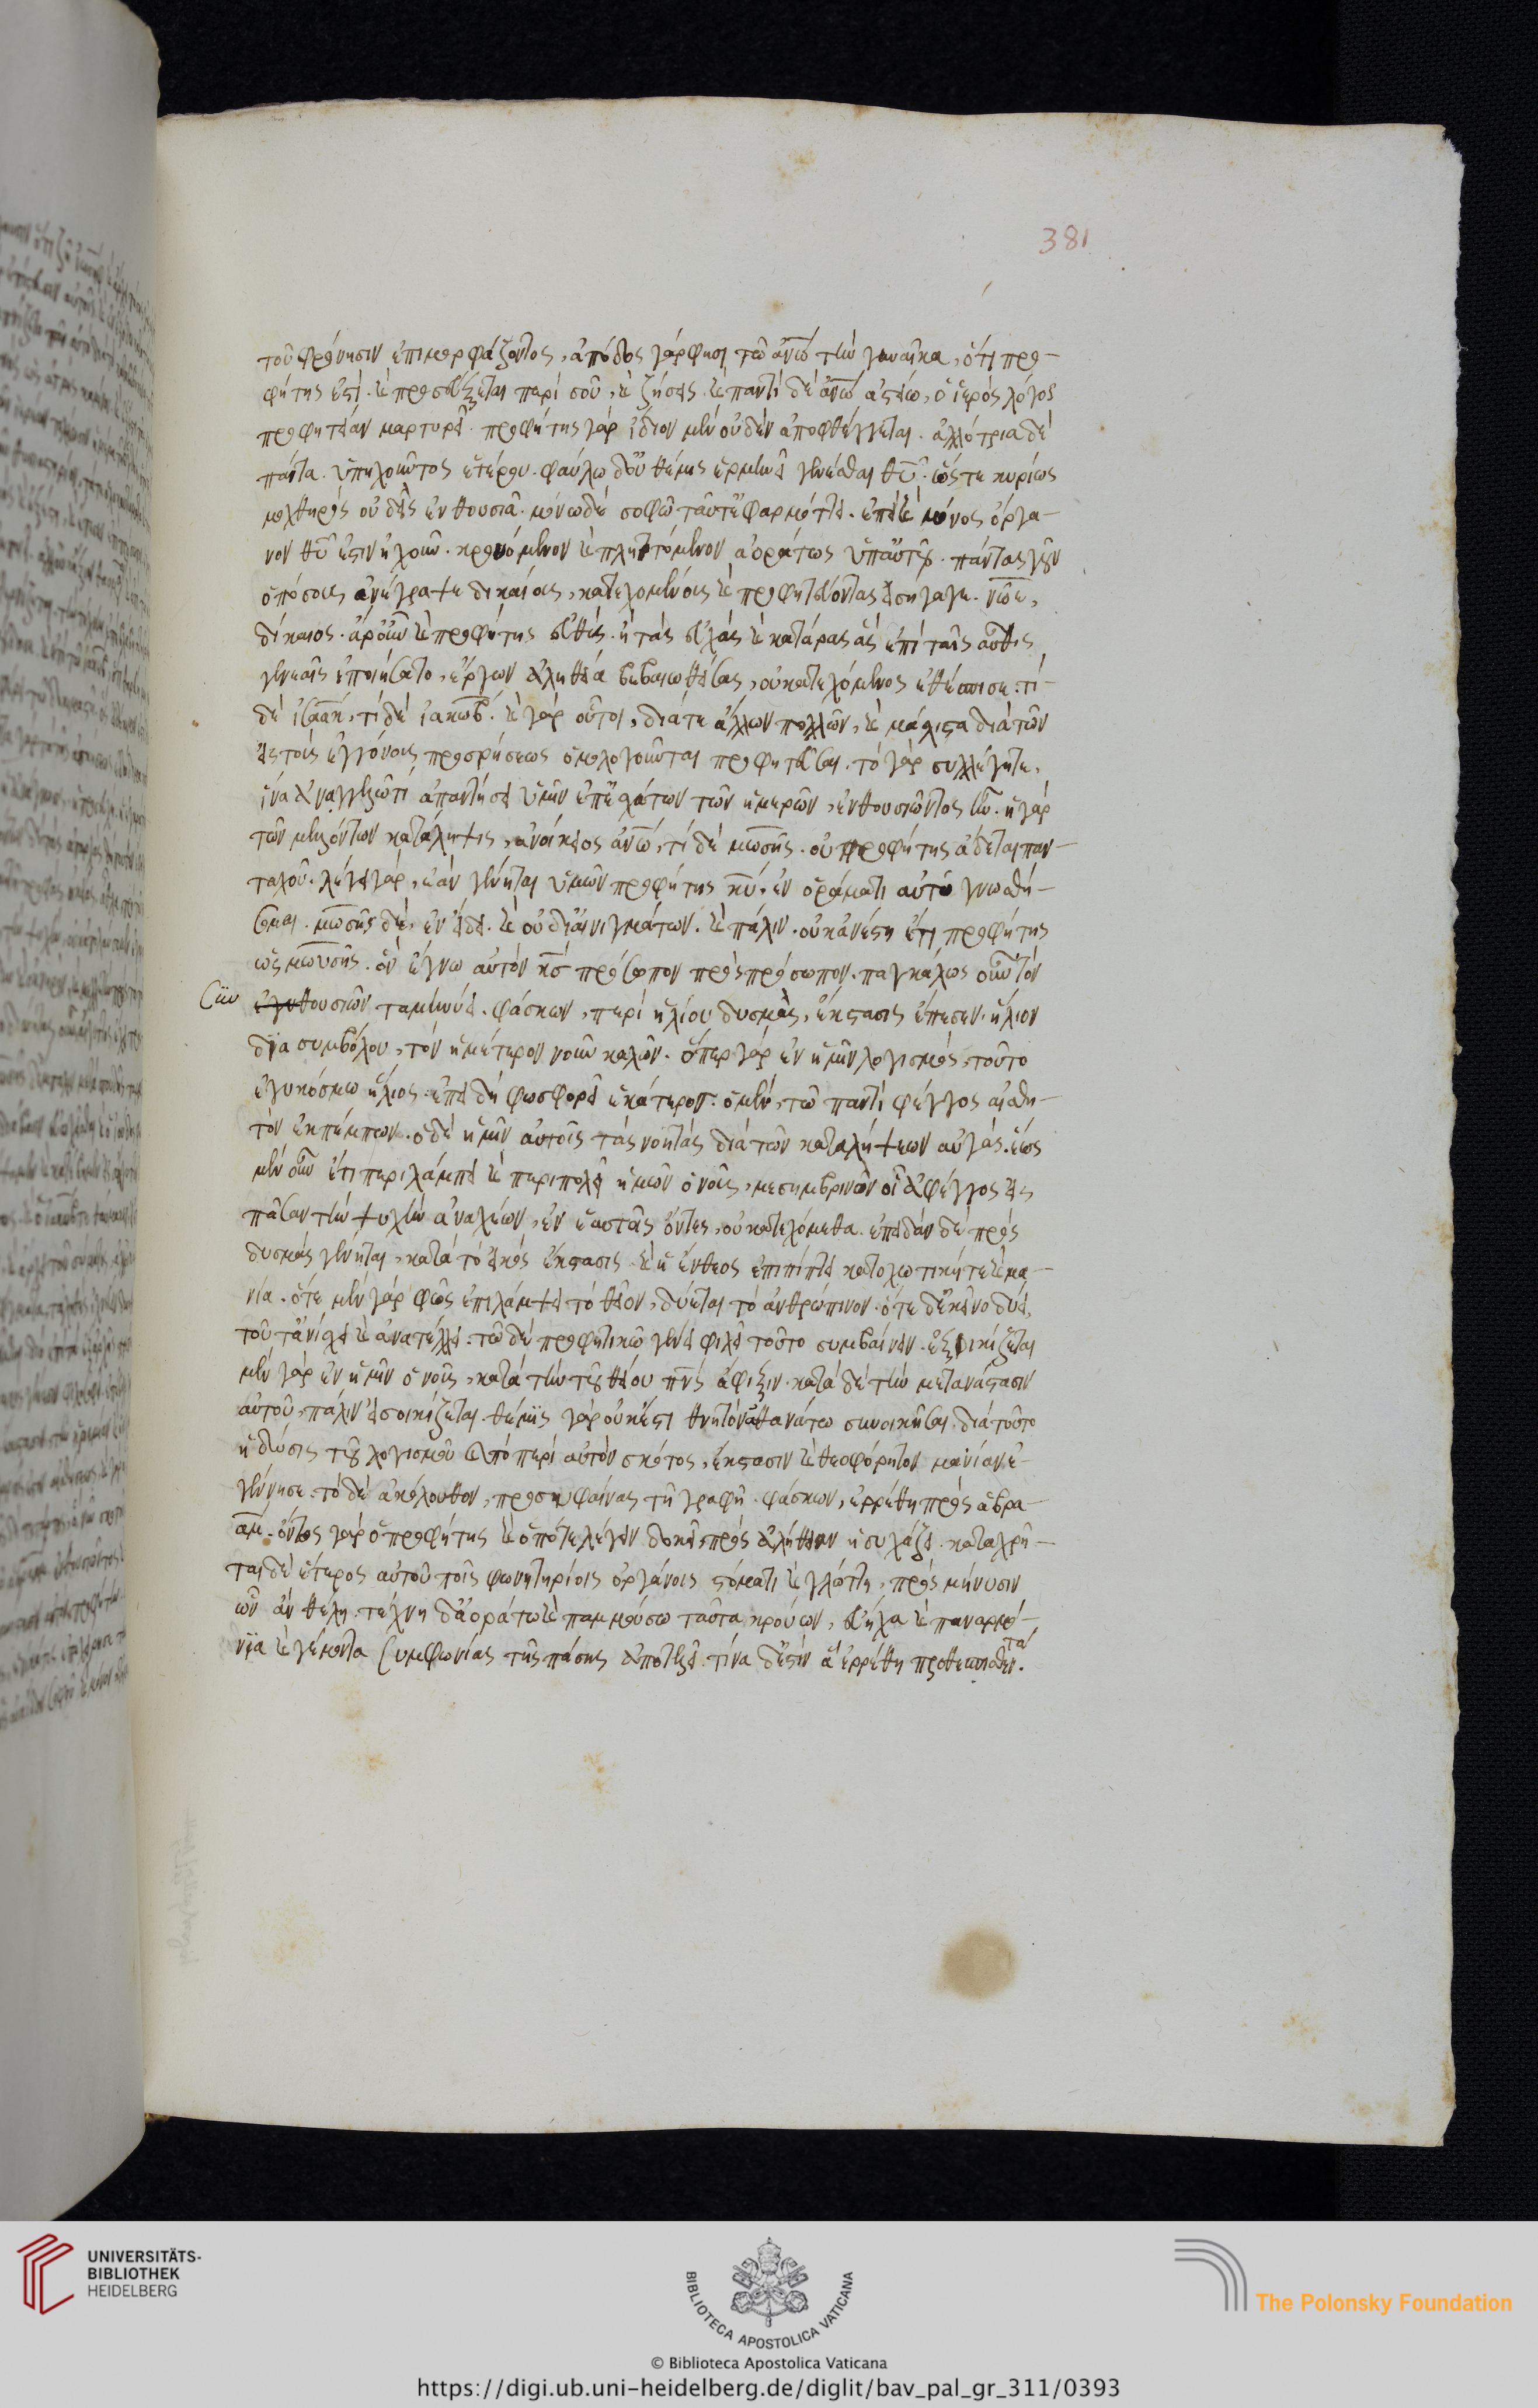 381
τοῦ φρόνησιν ἐπιμορφάζοντος, ἀπόδος γάρ φησι τῶ ἀνω τὴν γυναῖκα, ὅτι προ-
φήτης ἐστὶ. καὶ προσεύξεται περὶ σοῦ, καὶ ζήσεις. καὶ παντὶ δὲ ἀνω ἀστείω, ὁ ἱερὸς λόγος
προφητείαν μαρτυρεῖ. προφήτης γὰρ ἴδιον μὲν οὐδὲν ἀποφθέγγεται. ἀλλότρια δὲ
πάντα. ὑπηχοῦντος ἑτέρου. φαύλω δ' οὐ θέμις ἑρμηνεῖ γενέσθαι θυ. ὥστε κυρίως
μοχθηρὸς οὐδεὶς ἐνθουσιᾶ. μόνω δὲ σοφῶ ταῦτ' ἐφαρμόττει. ἐπεὶ καὶ μόνος ὄργα-
νον θυ ἐστιν ἠχοῦν. κρουόμενον καὶ πληττόμενον ἀοράτως ὑπ' αὐτοῦ. πάντας γοῦν
ὁπόσους ἀνέγραψε δικαίους, κατεχομένους καὶ προφητεύοντας εἰσήγαγε. νῶε,
δίκαιος. ἆρ' οὖν καὶ προφήτης εὐθύς. ἢ τὰς εὐχὰς καὶ κατάρας ἃς ἐπὶ ταῖς αὖθις
γενεαῖς ἐποιήσατο, ἔργων ἀληθεία βεβαιωθείσας, οὐ κατεχόμενος ἐθέσπισε. τί
δὲ ισαάκ, τί δὲ ιακώβ. καὶ γὰρ οὗτοι, διά τε ἄλλων πολλῶν, καὶ μάλιστα διὰ τῶν
εἰς τοὺς ἐγγόνους προσρήσεως ὁμολογοῦνται προφητεῦσαι. τὸ γὰρ συλλέγητε,
ἵνα ἀναγγελῶ τί ἀπαντήσει ὑμῖν ἐπ' ἐσχάτων τῶν ἡμερῶν, ἐνθουσιῶντος ἦν. ἡ γὰρ
τῶν μελλόντων κατάληψις, ἀνοίκειος ἀνω, τί δὲ μωσῆς. οὐ προφήτης ἄδεται παν-
ταχοῦ. λέγει γάρ, ἐὰν γένηται ὑμῶν προφήτης κυ, ἐν ὁράματι αὐτῶ γνωσθή-
σομαι. μωσῆς δὲ, ἐν εἴδει. καὶ οὐ δι' αἰνιγμάτων. καὶ πάλιν. οὐκ ἀνέστη ἔτι προφήτης
ὡς μωυσῆς. ὃν ἔγνω αὐτὸν κσ πρόσωπον πρὸς πρόσωπον. παγκάλως οὖν τὸν
ἐνθουσιῶντα μηνύει. φάσκων, περὶ ἡλίου δυσμὰς, ἔκστασις ἔπεσεν. ἥλιον
διὰ συμβόλου, τὸν ἡμέτερον νοῦν καλῶν. ὅπερ γὰρ ἐν ἡμῖν λογισμὸς, τοῦτο
ἐν κόσμω ἥλιος. ἐπειδὴ φωσφορεῖ ἑκάτερος. ὁ μὲν, τῶ παντὶ φέγγος αἰσθη-
τὸν ἐκπέμπων. ὁ δὲ ἡμῖν αὐτοῖς τὰς νοητὰς διὰ τῶν καταλήψεων αὐγάς. ἕως
μὲν οὖν ἔτι περιλάμπει καὶ περιπολεῖ ἡμῶν ὁ νοῦς, μεσημβρινὸν οἷα φέγγος εἰς
πᾶσαν τὴν ψυχὴν ἀναχέων, ἐν ἑαυτοῖς ὄντες, οὐ κατεχόμεθα. ἐπειδὰν δὲ πρὸς
δυσμὰς γένηται, κατὰ τὸ εἰκὸς ἔκστασις καὶ ἡ ἔνθεος ἐπιπίπτει κατοχωτική τε καὶ μα-
νία. ὅτε μὲν γὰρ φῶς ἐπιλάμψει τὸ θεῖον, δύεται τὸ ἀνθρώπινον. ὅτε δ' ἐκεῖνο δύει,
τοῦτ' ἀνίσχει καὶ ἀνατέλλει. τῶ δὲ προφητικῶ γένει φιλεῖ τοῦτο συμβαίνειν. ἐξοικίζεται
μὲν γὰρ ἐν ἡμῖν ὁ νοῦς, κατὰ τὴν τοῦ θείου πνς ἄφιξιν. κατὰ δὲ τὴν μετανάστασιν
αὐτοῦ, πάλιν εἰσοικίζεται. θέμις γὰρ οὐκ ἔστι θνητὸν ἀθανάτω συνοικῆσαι. διὰ τοῦτο
ἡ δύσις τοῦ λογισμοῦ καὶ τὸ περὶ αὐτὸν σκότος, ἔκστασιν καὶ θεοφόρητον μανίαν ἐ-
γέννησε. τὸ δὲ ἀκόλουθον, προσυφαίνας τῆ γραφῆ. φάσκων, ἐρρέθη πρὸς ἀβρα-
άμ. ὄντως γὰρ ὁ προφήτης καὶ ὁπότε λέγειν δοκεῖ, πρὸς ἀλήθειαν ἡσυχάζει. καταχρῆ-
ται δὲ ἕτερος αὐτοῦ τοῖς φωνητηρίοις ὀργάνοις στόματι καὶ γλώττη, πρὸς μήνυσιν
ὧν ἂν θέλη. τέχνη δ' ἀοράτω καὶ παμμούσω ταῦτα κρούων, εὔηχα καὶ παναρμό-
νια καὶ γέμοντα συμφωνίας τῆς πάσης ἀποτελεῖ. τίνα δ' ἐστὶν ἃ ἐρρέθη προθεσπισθέντα.
UNIVERSITÄTS-
BIBLIOTHEK
HEIDELBERG
BIBLIOTECA APOSTOLICA VATICANA
The Polonsky Foundation
© Biblioteca Apostolica Vaticana
https://digi.ub.uni-heidelberg.de/diglit/bav_pal_gr_311/0393